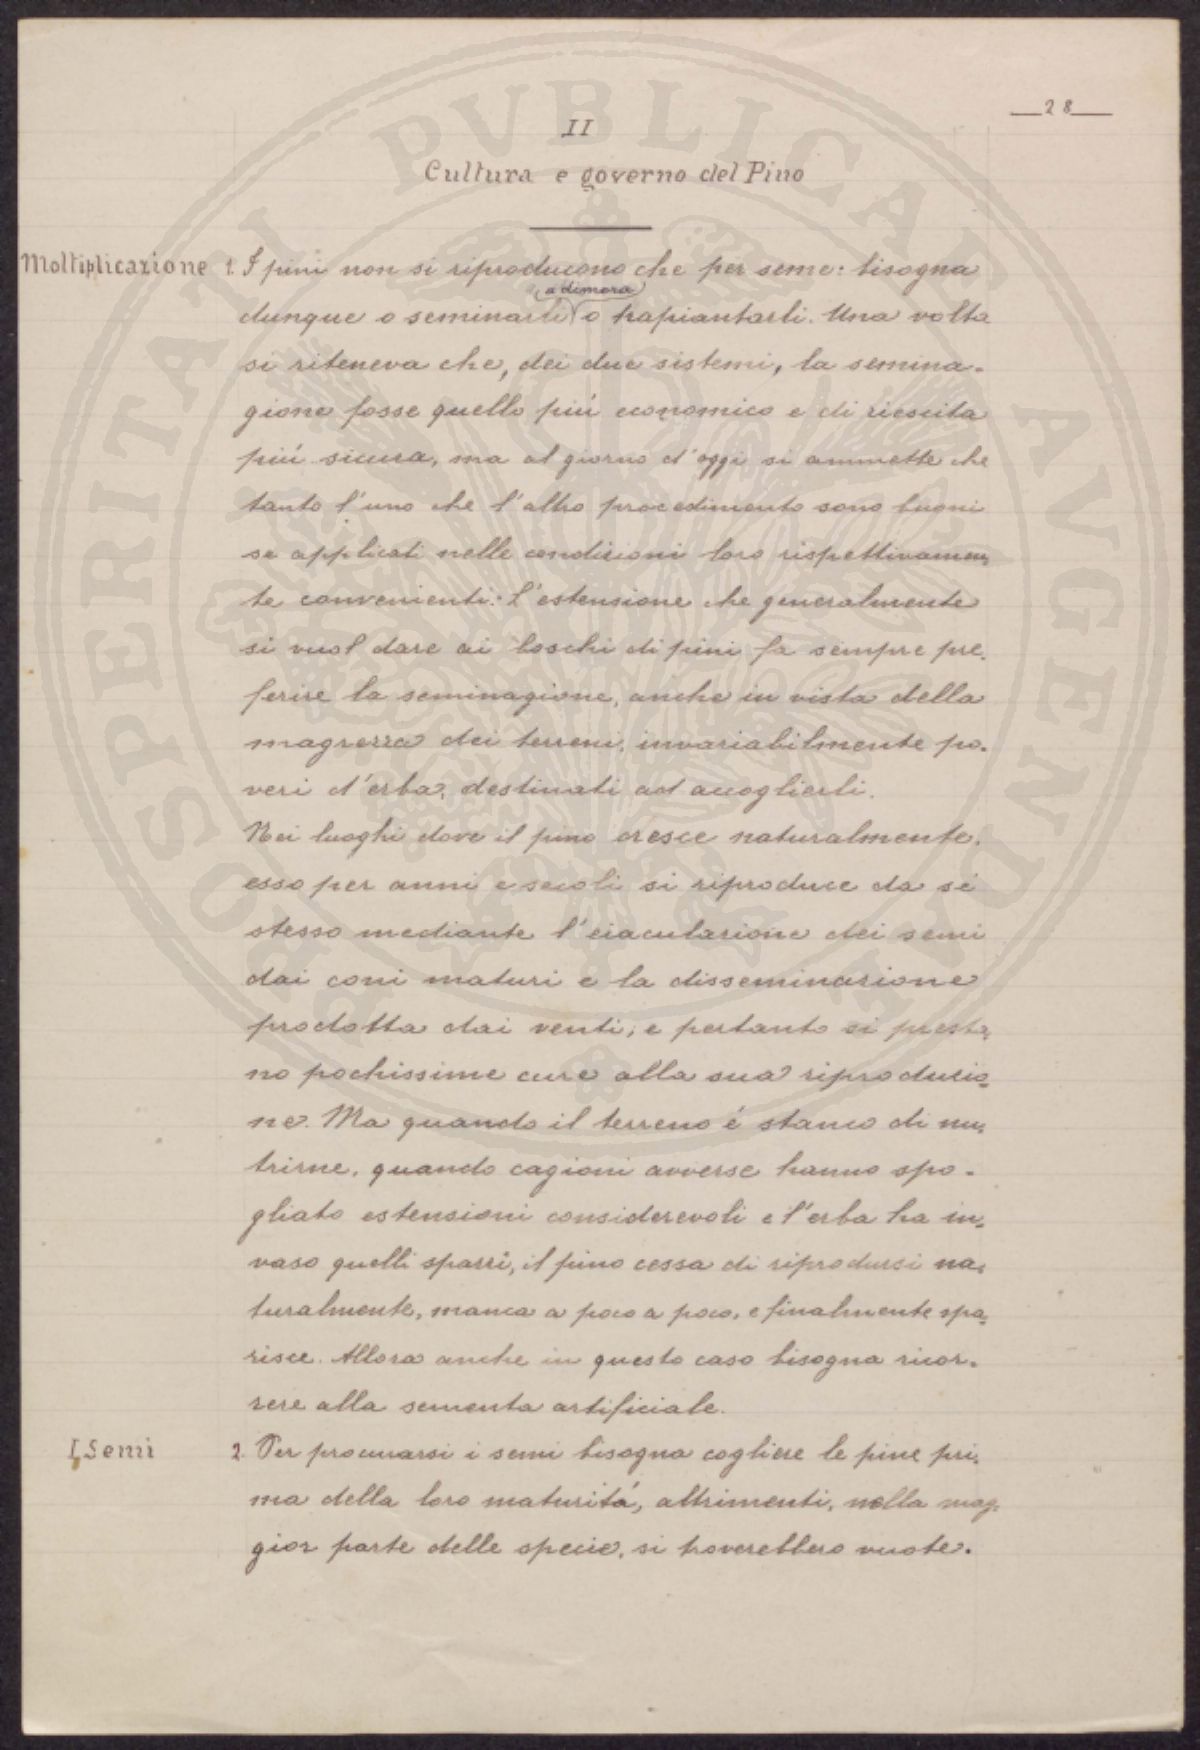 28
II
Cultura e governo del Pino
Moltiplicazione 1. I pini non si riproducono che per seme: bisogna
a dimora
dungue o seminarli o trapiantarli. Una volta
si riteneva che, dei due sistemi, la semina-
gione fosse quello piú economico e di riescita
piú sicura, ma al giorno d'oggi si ammette che
tanto l'uno che l'altro procedimento sono buoni
se applicati nelle condizioni loro rispettivamen-
te convenienti: l'estensione che generalmente
si vuol dare ai boschi di pini fa sempre pre-
ferire la seminagione, anche in vista della
magrezza dei terreni, invariabilmente po-
veri d'erba, destinati ad accoglierli.
Nei luoghi dove il pino cresce naturalmente,
esso per anni e secoli si riproduce da sé
stesso mediante l'eiaculazione dei semi
dai coni maturi e la disseminazione
prodotta dai venti; e pertanto si presta-
no pochissime cure alla sua riproduzio-
ne. Ma quando il terreno é stanco di nu-
trirne, quando cagioni avverse hanno spo-
gliato estensioni considerevoli e l'erba ha in-
vaso quelli spazzi, il pino cessa di riprodursi na-
turalmente, manca a poco a poco, e finalmente spa-
risce. Allora anche in questo caso bisogna ricor-
rere alla sementa artificiale.
I Semi 2. Per procurarsi i semi bisogna cogliere le pine pri-
ma della loro maturitá, altrimenti, nella mag-
gior parte delle specie, si troverebbero vuote.
PROSPERITATI PUBLICAE AVGENDAE